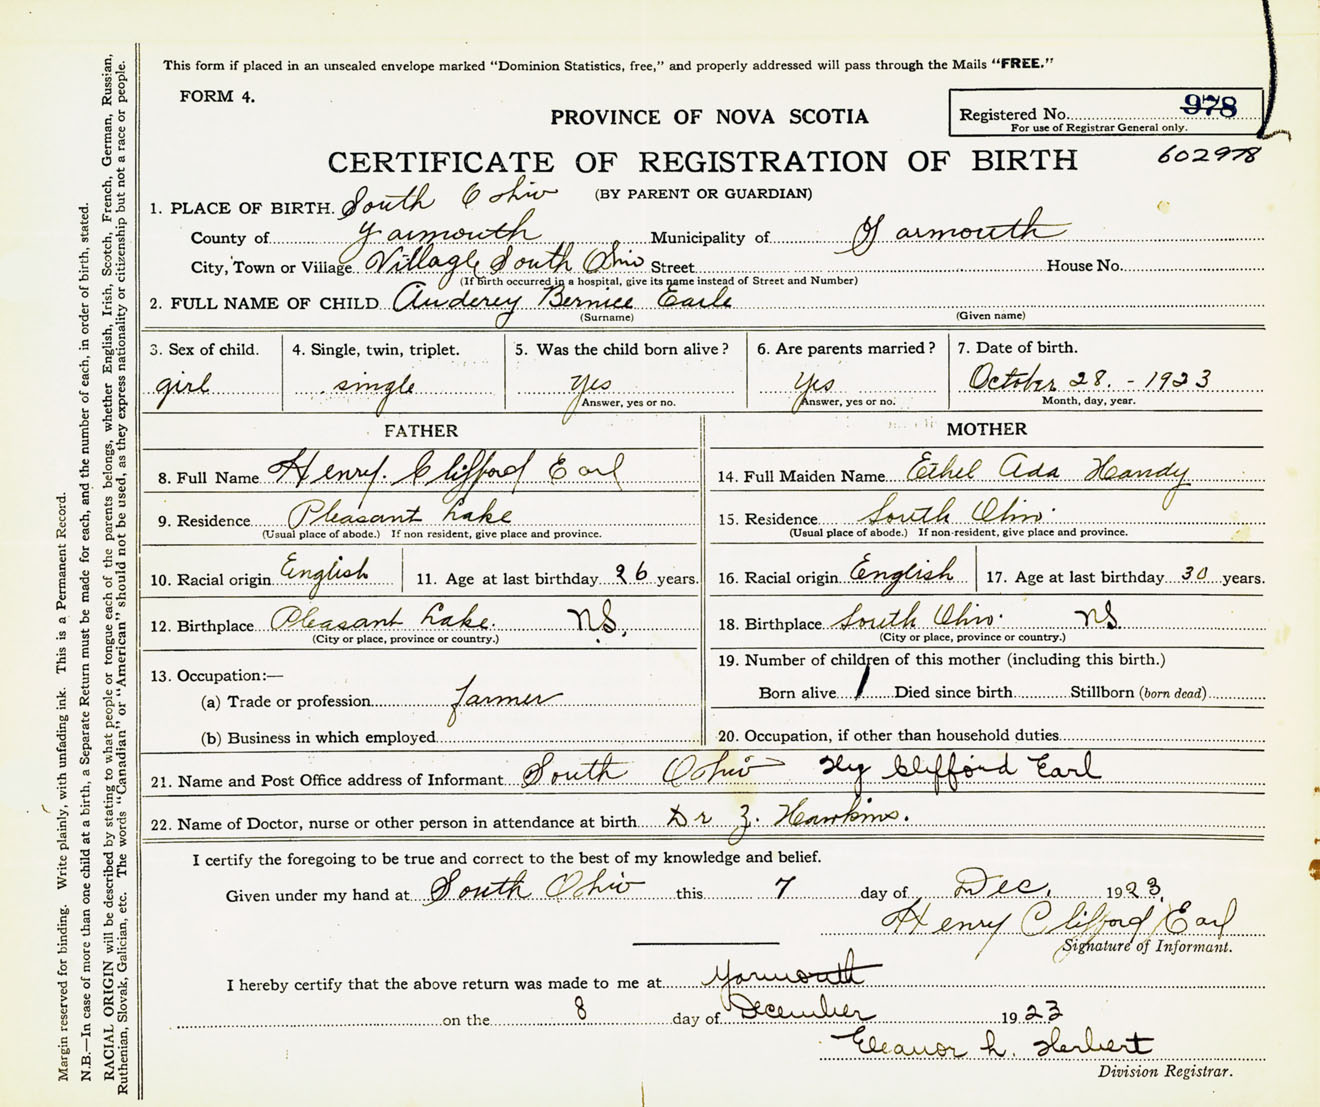 This form if placed in an unsealed envelope marked "Dominion Statistics, free," and properly addressed will pass through the Mails "FREE."
FORM 4.
PROVINCE OF NOVA SCOTIA
Registered No. 978
For use of Registrar General only.
CERTIFICATE OF REGISTRATION OF BIRTH
602978
(BY PARENT OR GUARDIAN)
1. PLACE OF BIRTH. South Ohio
County of Yarmouth Municipality of Yarmouth
City, Town or Village Village South Ohio Street House No.
(If birth occurred in a hospital, give its name instead of Street and Number)
2. FULL NAME OF CHILD Auderey Bernice Earle
(Surname) (Given name)
3. Sex of child. 4. Single, twin, triplet. 5. Was the child born alive? 6. Are parents married? 7. Date of birth.
girl single Yes Yes October 28. - 1923
Answer, yes or no. Answer, yes or no. Month, day, year.
FATHER MOTHER
8. Full Name Henry. Clifford Earl 14. Full Maiden Name Ethel Ada Handy
9. Residence Pleasant Lake 15. Residence South Ohio.
(Usual place of abode.) If non resident, give place and province. (Usual place of abode.) If non-resident, give place and province.
10. Racial origin English 11. Age at last birthday 26 years. 16. Racial origin English 17. Age at last birthday 30 years.
12. Birthplace Pleasant Lake. N.S. 18. Birthplace South Ohio. NS.
(City or place, province or country.) (City or place, province or country.)
13. Occupation:— 19. Number of children of this mother (including this birth.)
(a) Trade or profession farmer Born alive 1 Died since birth Stillborn (born dead)
(b) Business in which employed 20. Occupation, if other than household duties
21. Name and Post Office address of Informant South Ohio Hy Clifford Earl
22. Name of Doctor, nurse or other person in attendance at birth Dr Z. Hawkins.
I certify the foregoing to be true and correct to the best of my knowledge and belief.
Given under my hand at South Ohio this 7 day of Dec. 1923.
Henry Clifford Earl
Signature of Informant.
I hereby certify that the above return was made to me at Yarmouth
on the 8 day of December 1923
Eleanor L. Herbert
Division Registrar.
Margin reserved for binding. Write plainly, with unfading ink. This is a Permanent Record.
N.B.—In case of more than one child at a birth, a Separate Return must be made for each, and the number of each, in order of birth, stated.
RACIAL ORIGIN will be described by stating to what people or tongue each of the parents belongs, whether English, Irish, Scotch, French, German, Russian,
Ruthenian, Slovak, Galician, etc. The words "Canadian" or "American" should not be used, as they express nationality or citizenship but not a race or people.